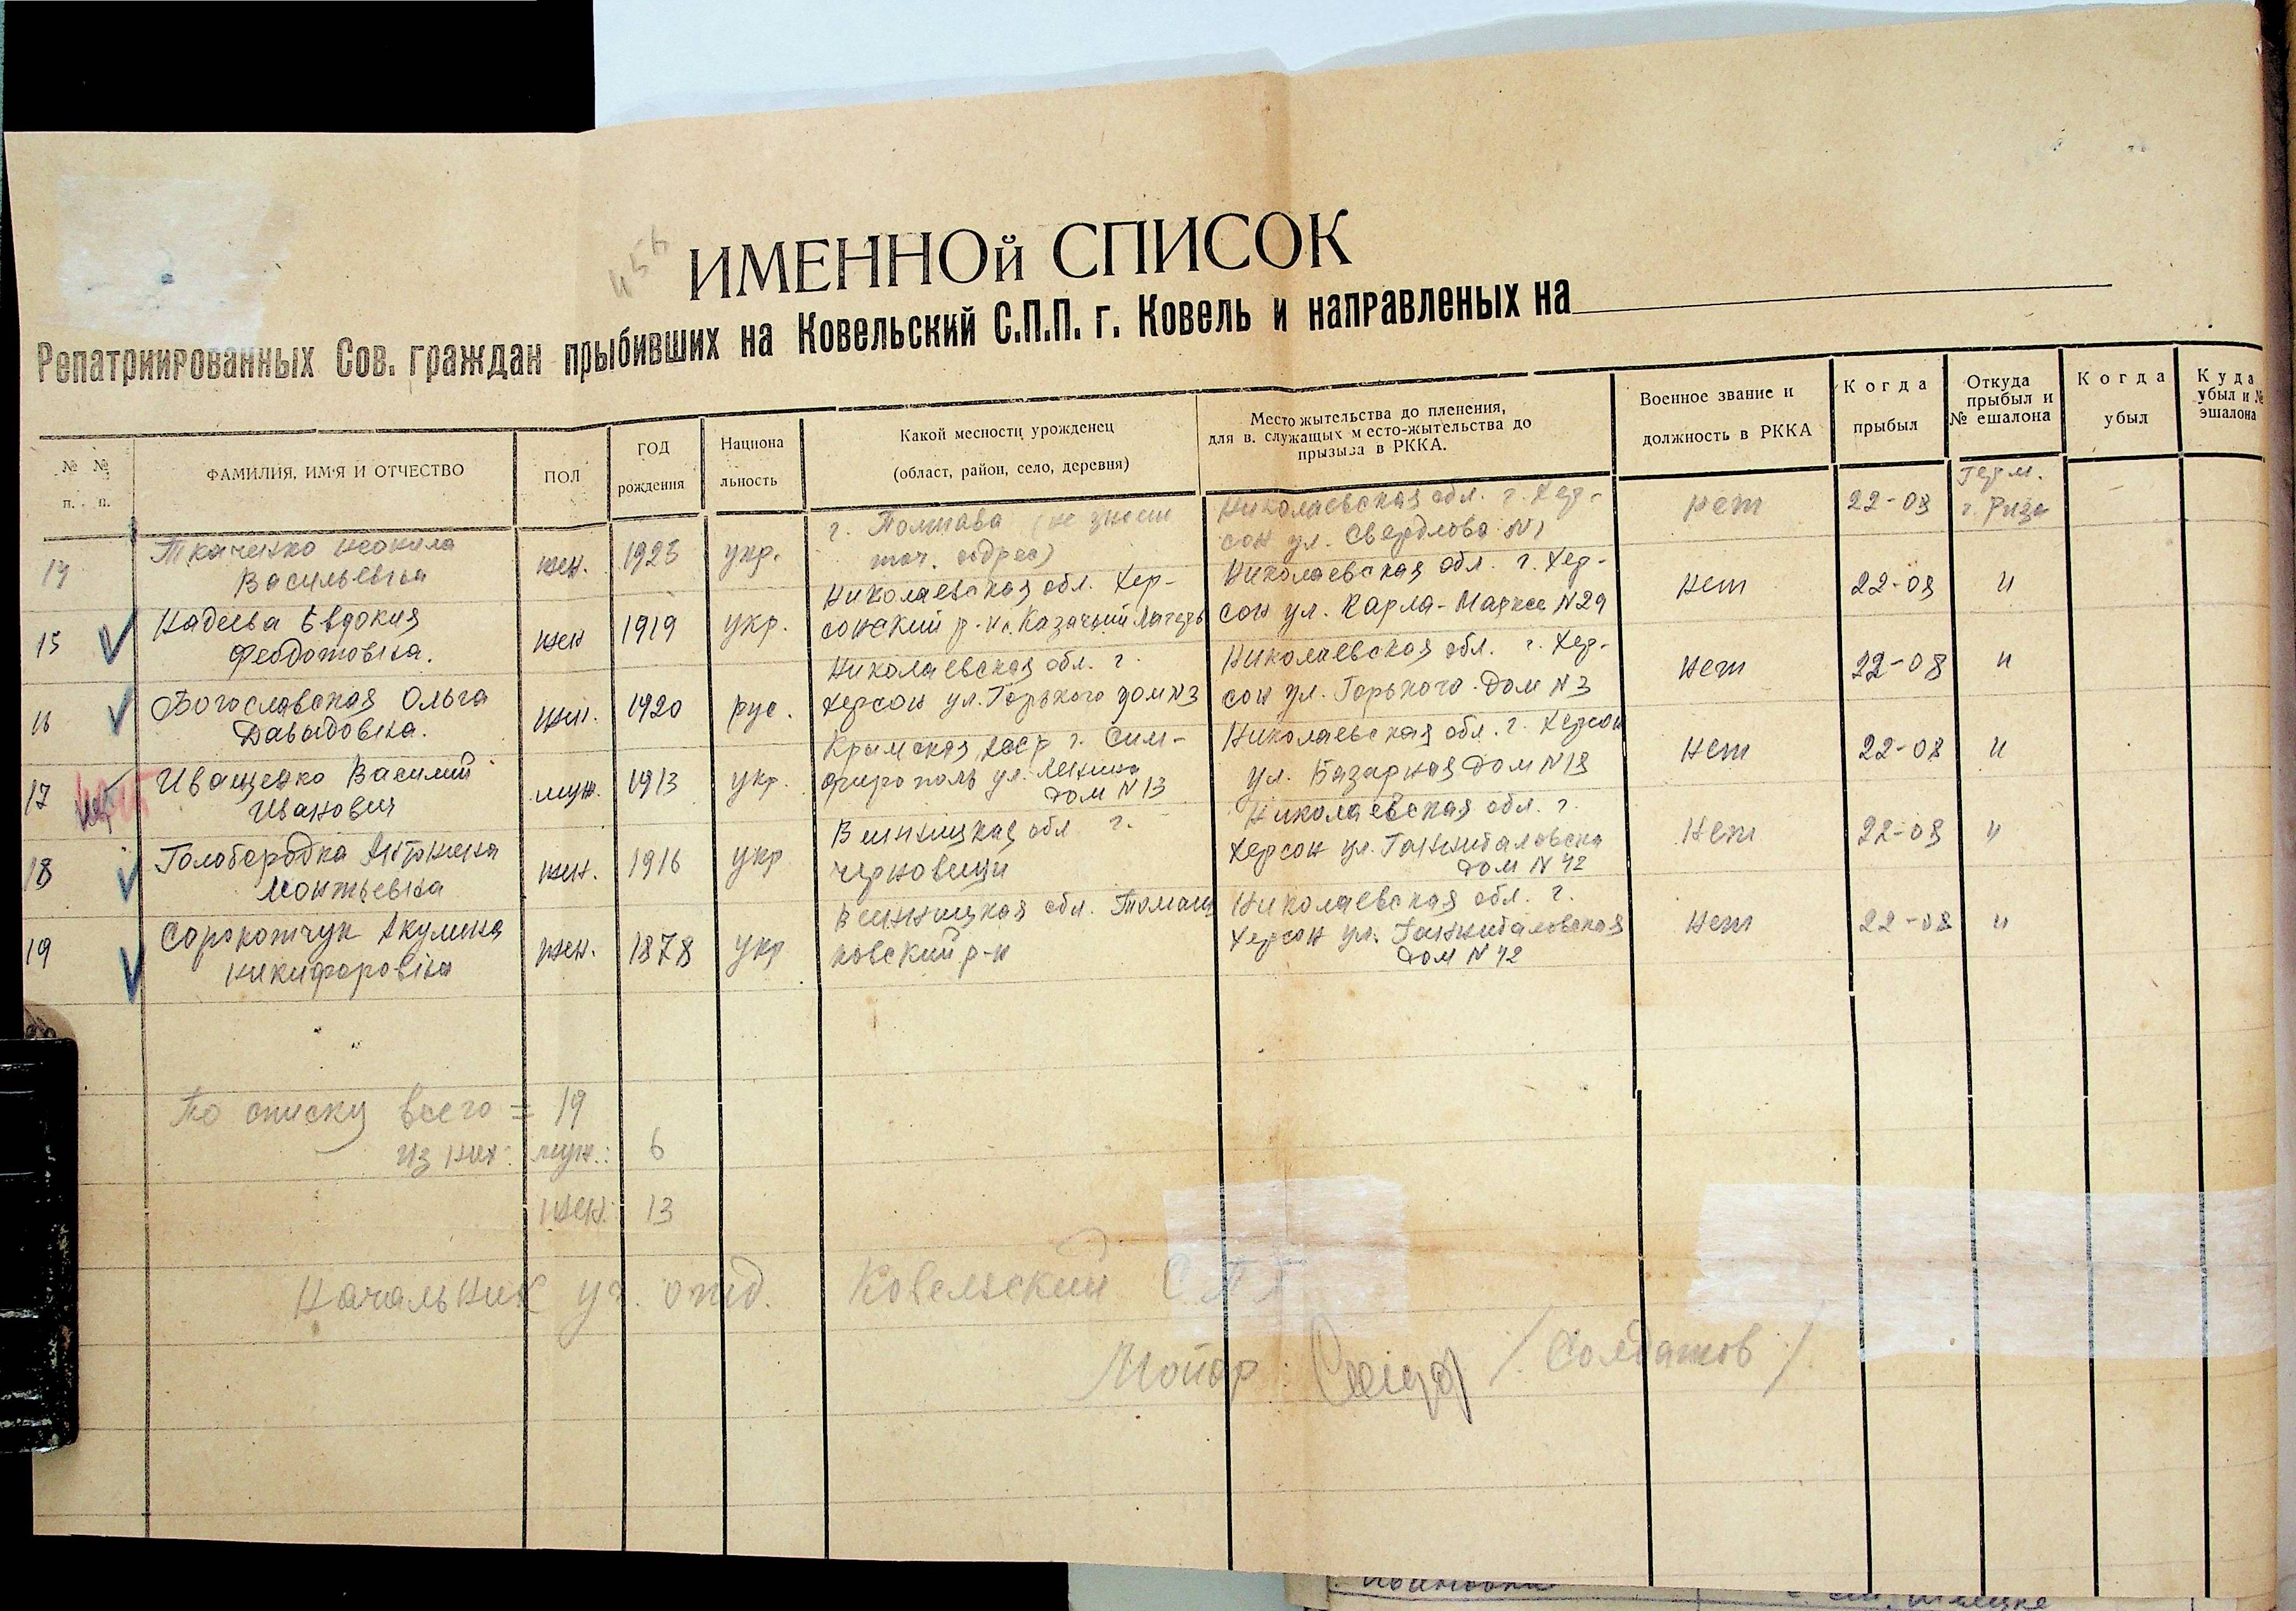 456
ИМЕННОЙ СПИСОК
Репатриированных Сов. граждан прыбивших на Ковельский С.П.П. г. Ковель и направленых на
№ № п. п.
ФАМИЛИЯ, ИМЯ И ОТЧЕСТВО
ПОЛ
ГОД рождения
Национа льность
Какой месности урожденец
(област, район, село, деревня)
Место жытельства до пленения,
для в. служащых место-жытельства до
прызыва в РККА.
Военное звание и
должность в РККА
Когда
прыбыл
Откуда
прыбыл и
№ ешалона
Когда
убыл
Куда
убыл и №
эшалона
14 Ткаченко Неонила Васильевна жен. 1923 укр. г. Полтава (не точ. адрес) Николаевская обл. г. Херсон ул. Свердлова N1 нет 22-08 Герм. г. Риза
15 Надеева Евдокия Феодотовна. жен 1919 укр. Николаевская обл. Хер-
сонский р-н с. Казачьий Лагерь Николаевская обл. г. Хер-
сон ул. Карла-Маркса N29 нет 22-08 "
16 Богославская Ольга Давыдовна. жен. 1920 рус. Николаевская обл. г.
Херсон ул. Горького дом N3 Николаевская обл. г. Хер-
сон ул. Горького дом N3 нет 22-08 "
17 нет Иващенко Василий Иванович муж. 1913 укр. Крымская АССР г. Сим-
фирополь ул. Ленина дом N13 Николаевская обл. г. Херсон
ул. Базарная дом N18 нет 22-08 "
18 Голобородка Антонина Леонтьевна жен. 1916 укр Винницкая обл г.
Черновици Николаевская обл. г.
Херсон ул. Ганнибаловска
дом N42 нет 22-08 "
19 Сорокотчук Акулина Никифоровна жен. 1878 укр Винницкая обл. Томаш
повский р-н Николаевская обл. г.
Херсон ул. Ганнибаловская
дом N42 нет 22-08 "
По списку всего = 19
из них: муж.: 6
жен: 13
Начальник уч. отд. Ковельский СПП
Майор: / Солдатов /